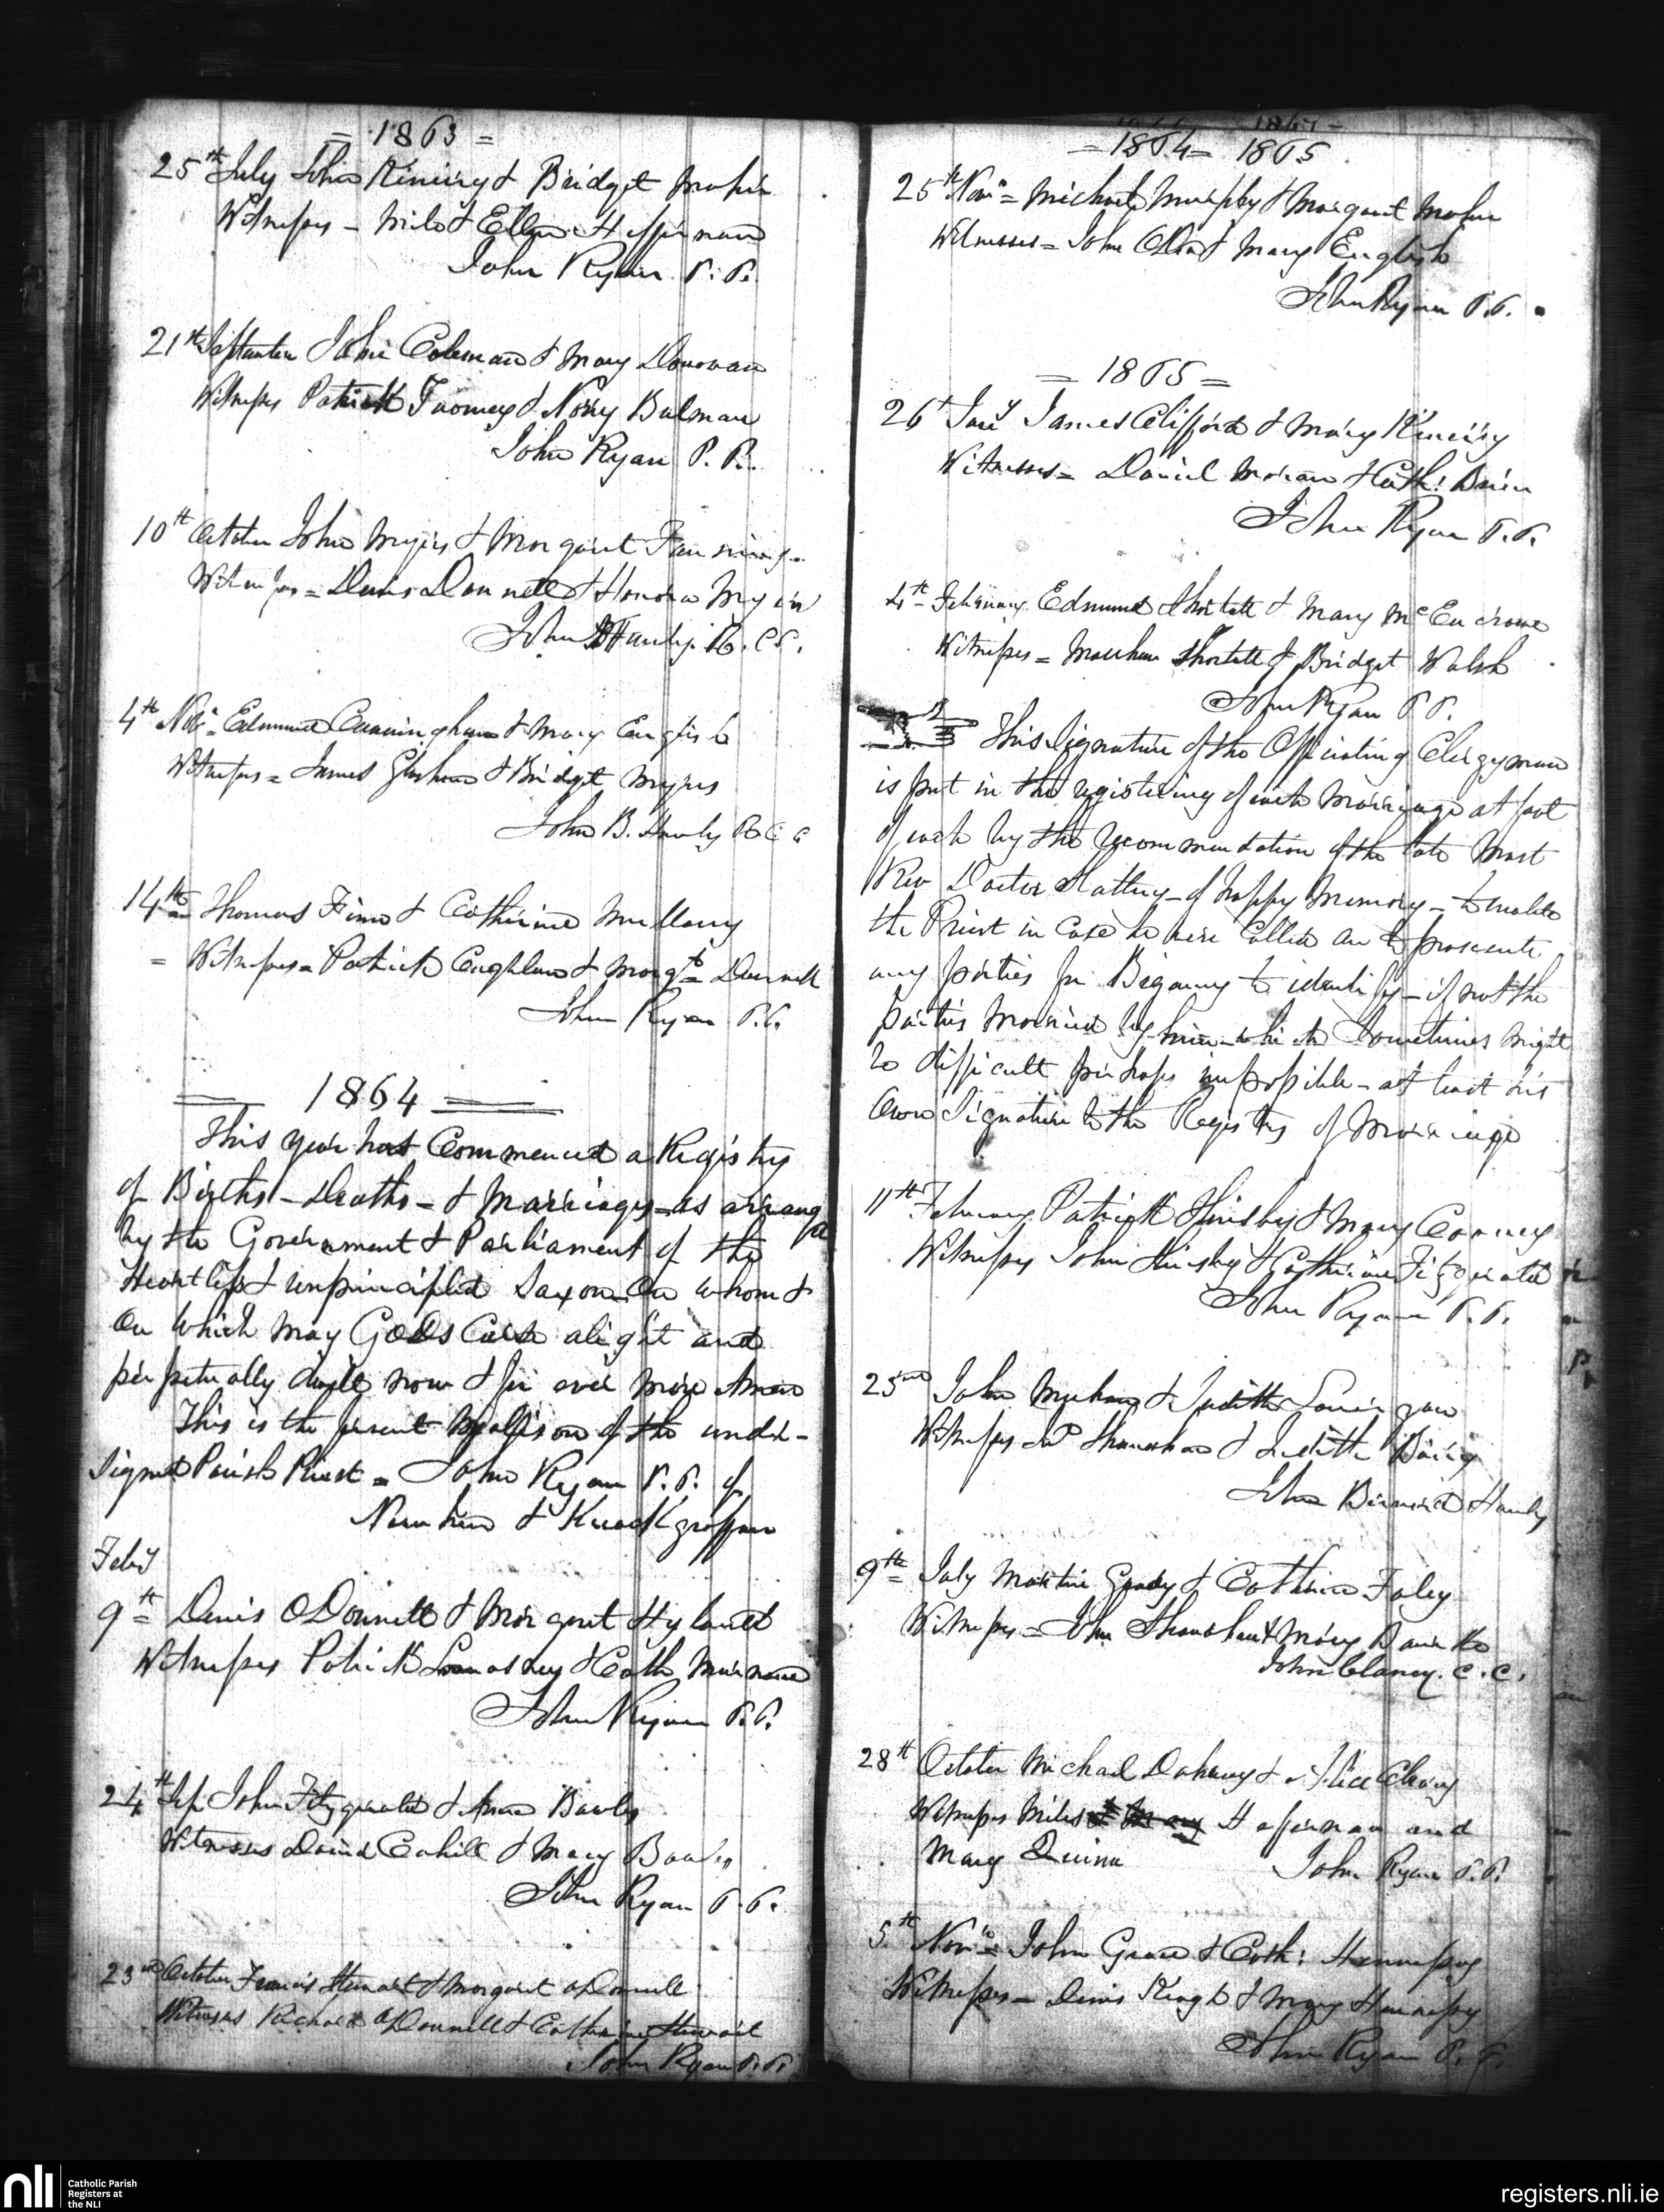 = 1863 =
25th July John Kiniry & Bridget Maher
Witnesses - Miles & Ellen Heffernan
John Ryan P.P.
21st September John Coleman & Mary Donovan
Witnesses Patrick Twomey & Nory Bulman
John Ryan P.P.
10th October John Myers & Margaret Fanning
Witnesses = Denis Donnell & Honora
John B Hawly R.C.C.
4th Nov = Edmund Cunningham & Mary English
Witnesses = James & Bridget Myres
John B. Hawly R C C
14th = Thomas Finn & Catherine Mullany
= Witnesses = Patrick Coughlan & Margt
John Ryan P.P.
1864
This year has Commenced a Registry
of Births - Deaths - & Marriages = as arranged
by the Government & Parliament of the
Heartless & unprincipled Saxon - On whom &
On Which May GODs Curse alight and
perpetually dwell now & for ever more Amen
This is the present Malison of the under-
signed Parish Priest = John Ryan P.P. of
Newinn & Knockgraffon
Feby
9th = Denis ODonnell & Margaret Hyland
Witnesses Patrick & Cath Murnane
John Ryan P.P.
24th Sep John Fitzgerald & Anne Bowles
Witnesses David Cahill & Mary Bowles
John Ryan P.P.
23rd October Francis Stewart & Margaret oDonnell
Witnesses Richard oDonnell & Catherine Stewart
John Ryan P.P.
= 1864 = 1865
25th Novr = Michael Murphy & Margaret Maher
Witnesses = John & Mary English
John Ryan P.P.
= 1865 =
26th Jany James Clifford & Mary Kiniry
Witnesses = Daniel Moran & Cath: Brien
John Ryan P.P.
4th February Edmund Shortall & Mary McEncrowe
Witnesses = Matthew Shortall & Bridget Walsh
John Ryan P P.
This Signature of the Officiating Clergyman
is put in the registering of each Marriage at foot
of each by the recommendation of the late Most
Rev Doctor Slattery - of happy Memory - to enable
the Priest in Case he were Called on to prosecute
any parties for Bigamy to identify - if not the
parties Married by him - which Sometimes might
be difficult perhaps impossible - at least his
Own Signature to the Registry of Marriage
11th February Patrick Hinsby & Mary Cooney
Witnesses John Hinsby & Catherine Fitzgerald
John Ryan P.P.
John Meehan & Judith Lonergan
Witnesses Shanahan & Judith
John Bernard Hawly
9th = July Martin Grady & Catherine Foley
Witnesses = John Shanahan & Mary
John Clancy. C.C.
28th October Michael Dahany & Alice Cleary
Witnesses Miles & Mary Heffernan and
Mary Quinn John Ryan P.P.
5th Novr = John Grace & Cath: Hennessy
Witnesses = Denis Keogh & Mary Hennessy
John Ryan P.P.
nli
Catholic Parish
Registers at
the NLI
registers.nli.ie